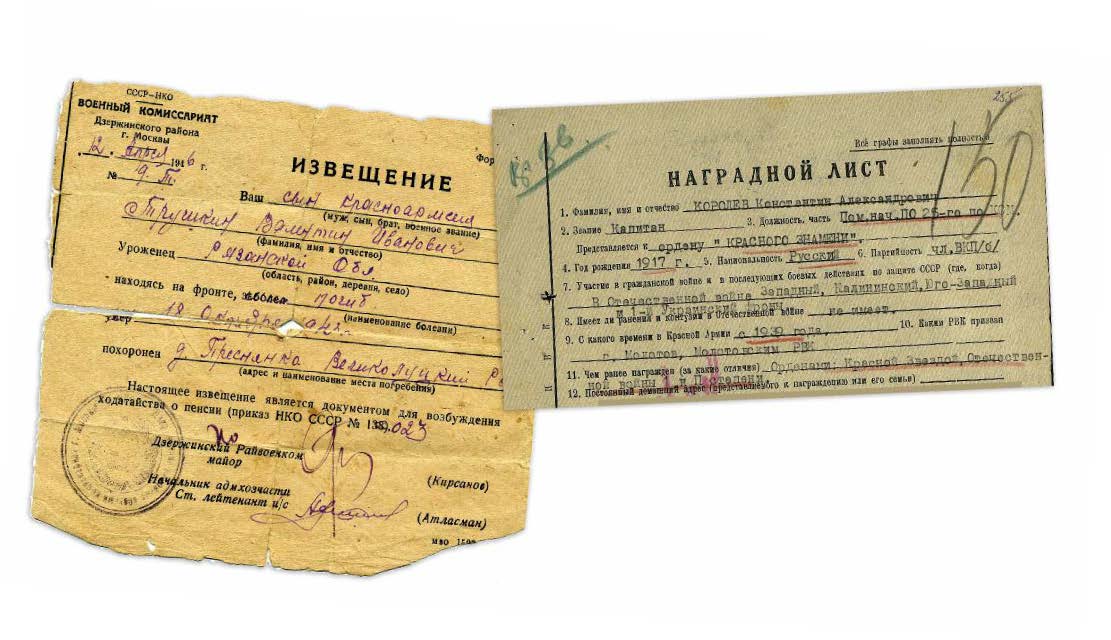 СССР-НКО
ВОЕННЫЙ КОМИССАРИАТ
Дзержинского района
г. Москвы
12 1946 г.
№ 9 т.
Фор
ИЗВЕЩЕНИЕ
Ваш сын красноармеец
(муж, сын, брат, военное звание)
Трушкин Валентин Иванович
(фамилия, имя и отчество)
Уроженец Рязанской Обл
(область, район, деревня, село)
находясь на фронте, погиб
(наименование болезни)
умер 18
похоронен д. Преснянка Великолуцкий
(адрес и наименование места погребения)
Настоящее извещение является документом для возбуждения
ходатайства о пенсии (приказ НКО СССР № 023
Дзержинский Райвоенком
майор
(Кирсанов)
Начальник админхозчасти
Ст. лейтенант и/с
(Атласман)
мво
255
150
Все графы заполнять полностью
НАГРАДНОЙ ЛИСТ
1. Фамилия, имя и отчество КОРОЛЕВ Константин Александрович
2. Звание Капитан 3. Должность, часть Пом.нач.ПО 26-го
Представляется к ордену "КРАСНОГО ЗНАМЕНИ".
4. Год рождения 1917 г. 5. Национальность Русский 6. Партийность чл.ВКП/б/
7. Участие в гражданской войне и в последующих боевых действиях по защите СССР (где, когда)
В Отечественной войне Западный, Калининский,Юго-Западный
и 1-й Украинский фронт.
8. Имеет ли ранения и контузии в Отечественной войне не имеет.
9. С какого времени в Красной Армии с 1939 года, 10. Каким РВК призван
г. Молотов, Молотовским РВК
11. Чем ранее награжден (за какие отличия) Орденами: Красной Звездой, Отечествен-
ной войны
12. Постоянный домашний адрес (представляемого к награждению или его семьи)